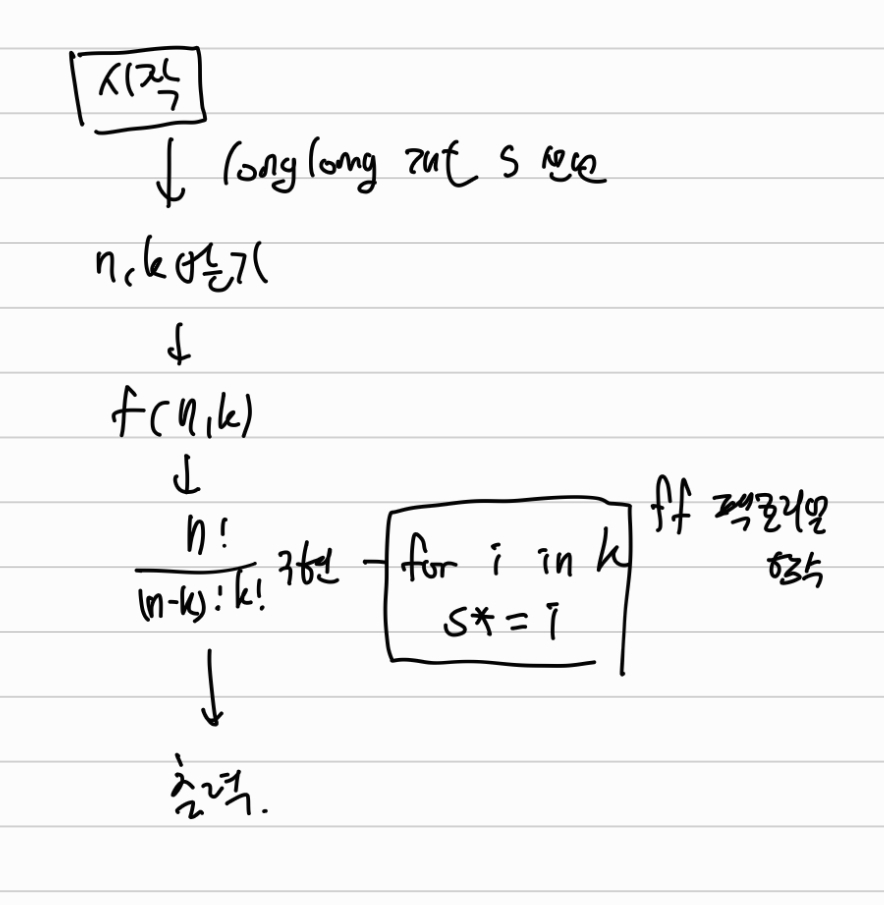 시작
↓ long long int s 선언
n, k 받기
↓
f(n,k)
↓
n!
(n-k)!k! 구현
for i in k
s*=i
ff 팩토리얼
함수
↓
출력.